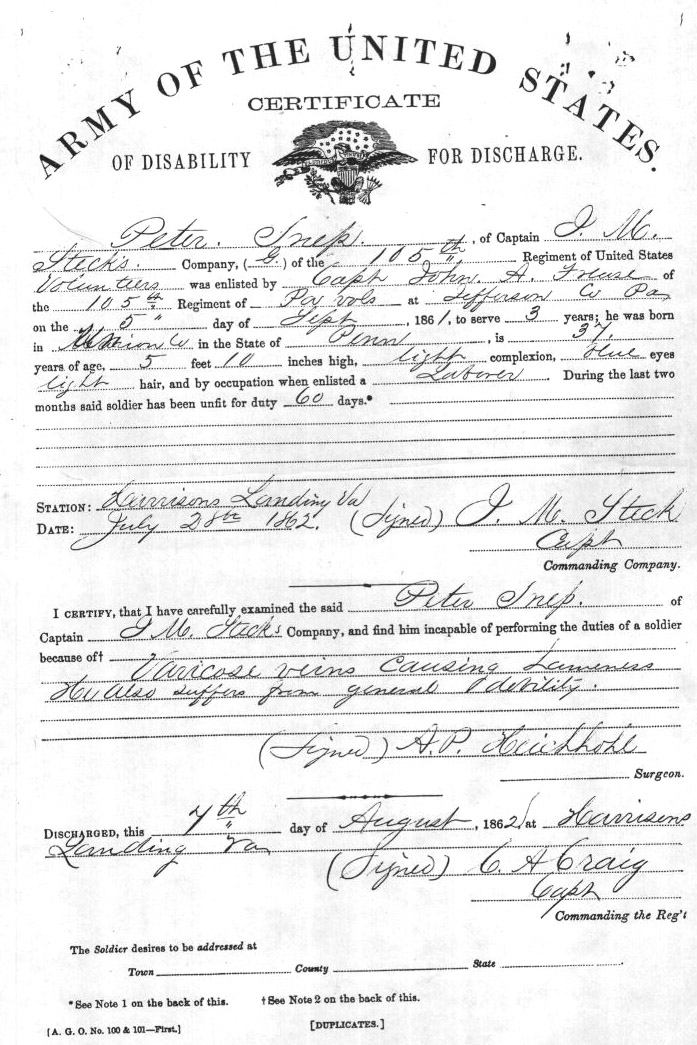 ARMY OF THE UNITED STATES.
CERTIFICATE
OF DISABILITY FOR DISCHARGE.
Peter. Snep. , of Captain J. M.
Steck's Company, (G.) of the 105th Regiment of United States
Volunteers was enlisted by Capt John. A. Freuse of
the 105th Regiment of Pa vols at Jefferson Co Pa
on the 5" day of Sept , 1861, to serve 3 years; he was born
in Co in the State of Penn , is 37
years of age, 5 feet 10 inches high, light complexion, blue eyes
light hair, and by occupation when enlisted a Laborer . During the last two
months said soldier has been unfit for duty 60 days.*
STATION: Harrisons Landing Va
DATE: July 28th 1862. (Signed) J. M. Steck
Capt
Commanding Company.
I CERTIFY, that I have carefully examined the said Peter Snep. of
Captain J M. Steck's Company, and find him incapable of performing the duties of a soldier
because of† Varicose veins causing Lameness
He also suffers from general debility.
(Signed) A. P. Heichhold
Surgeon.
DISCHARGED, this 7th day of August , 1862 at Harrisons
Landing Va
(Signed) C. A Craig
Capt
Commanding the Reg't
The Soldier desires to be addressed at
Town County State
*See Note 1 on the back of this. †See Note 2 on the back of this.
[A. G. O. No. 100 & 101—First.] [DUPLICATES.]